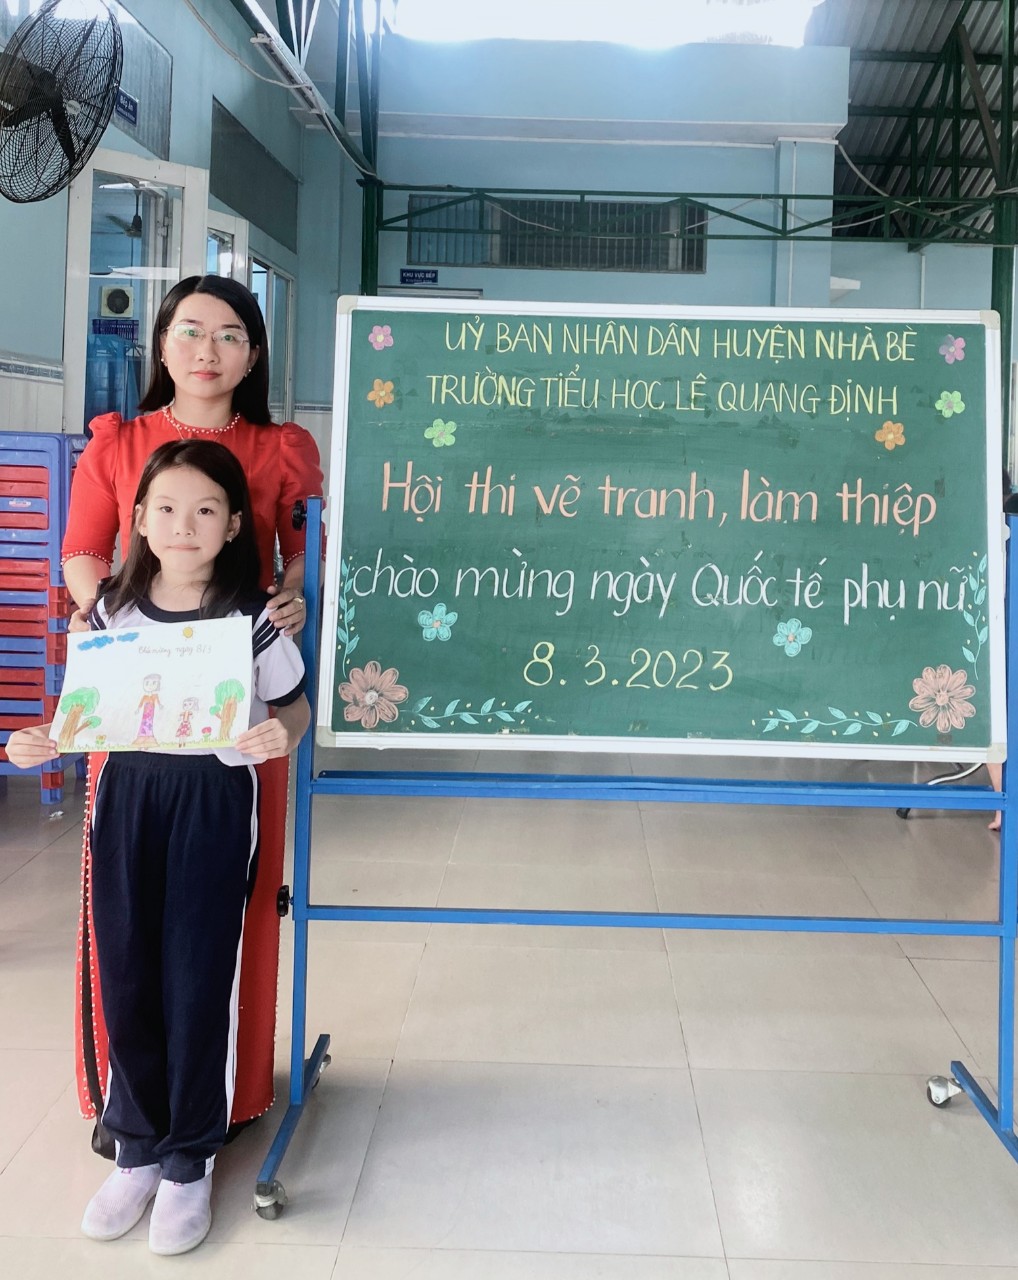 KHU VỰC BẾP
UỶ BAN NHÂN DÂN HUYỆN NHÀ BÈ
TRƯỜNG TIỂU HỌC LÊ QUANG ĐỊNH
Hội thi vẽ tranh, làm thiệp
chào mừng ngày Quốc tế phụ nữ
8.3.2023
ngày 8/3